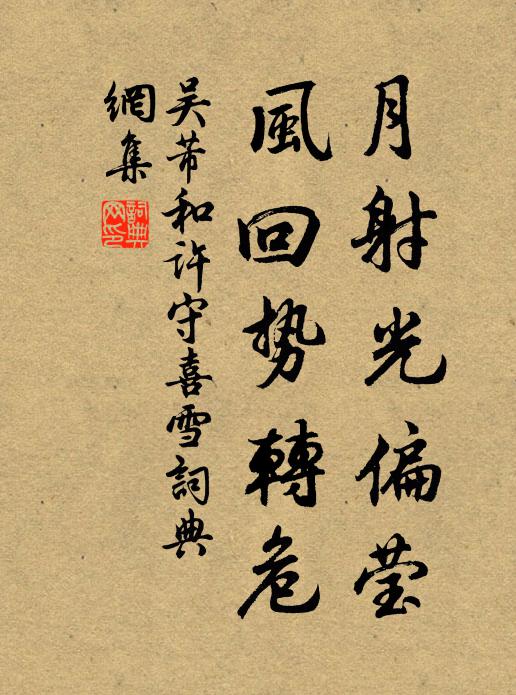 月射光偏莹
風回势轉危
吴芾和许守喜雪詞典
網集
詞典
网印